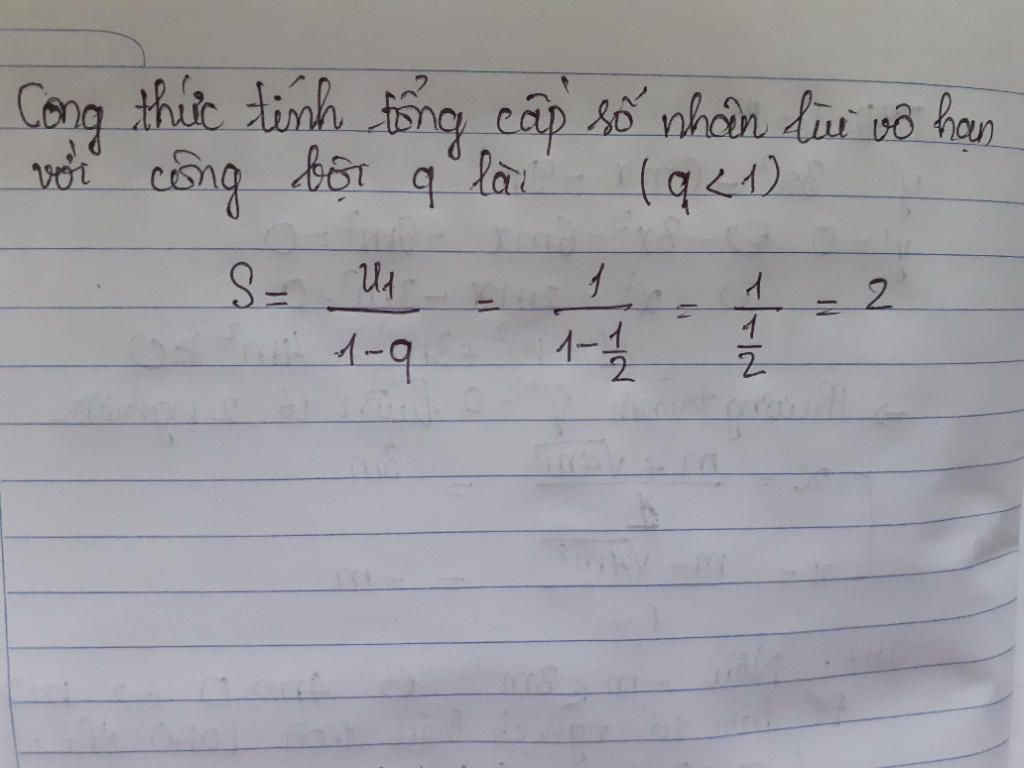 Công thức tính tổng cấp số nhân lùi vô hạn
với công bội q là: (q < 1)
S = u1/(1-q) = 1/(1-1/2) = 1/(1/2) = 2